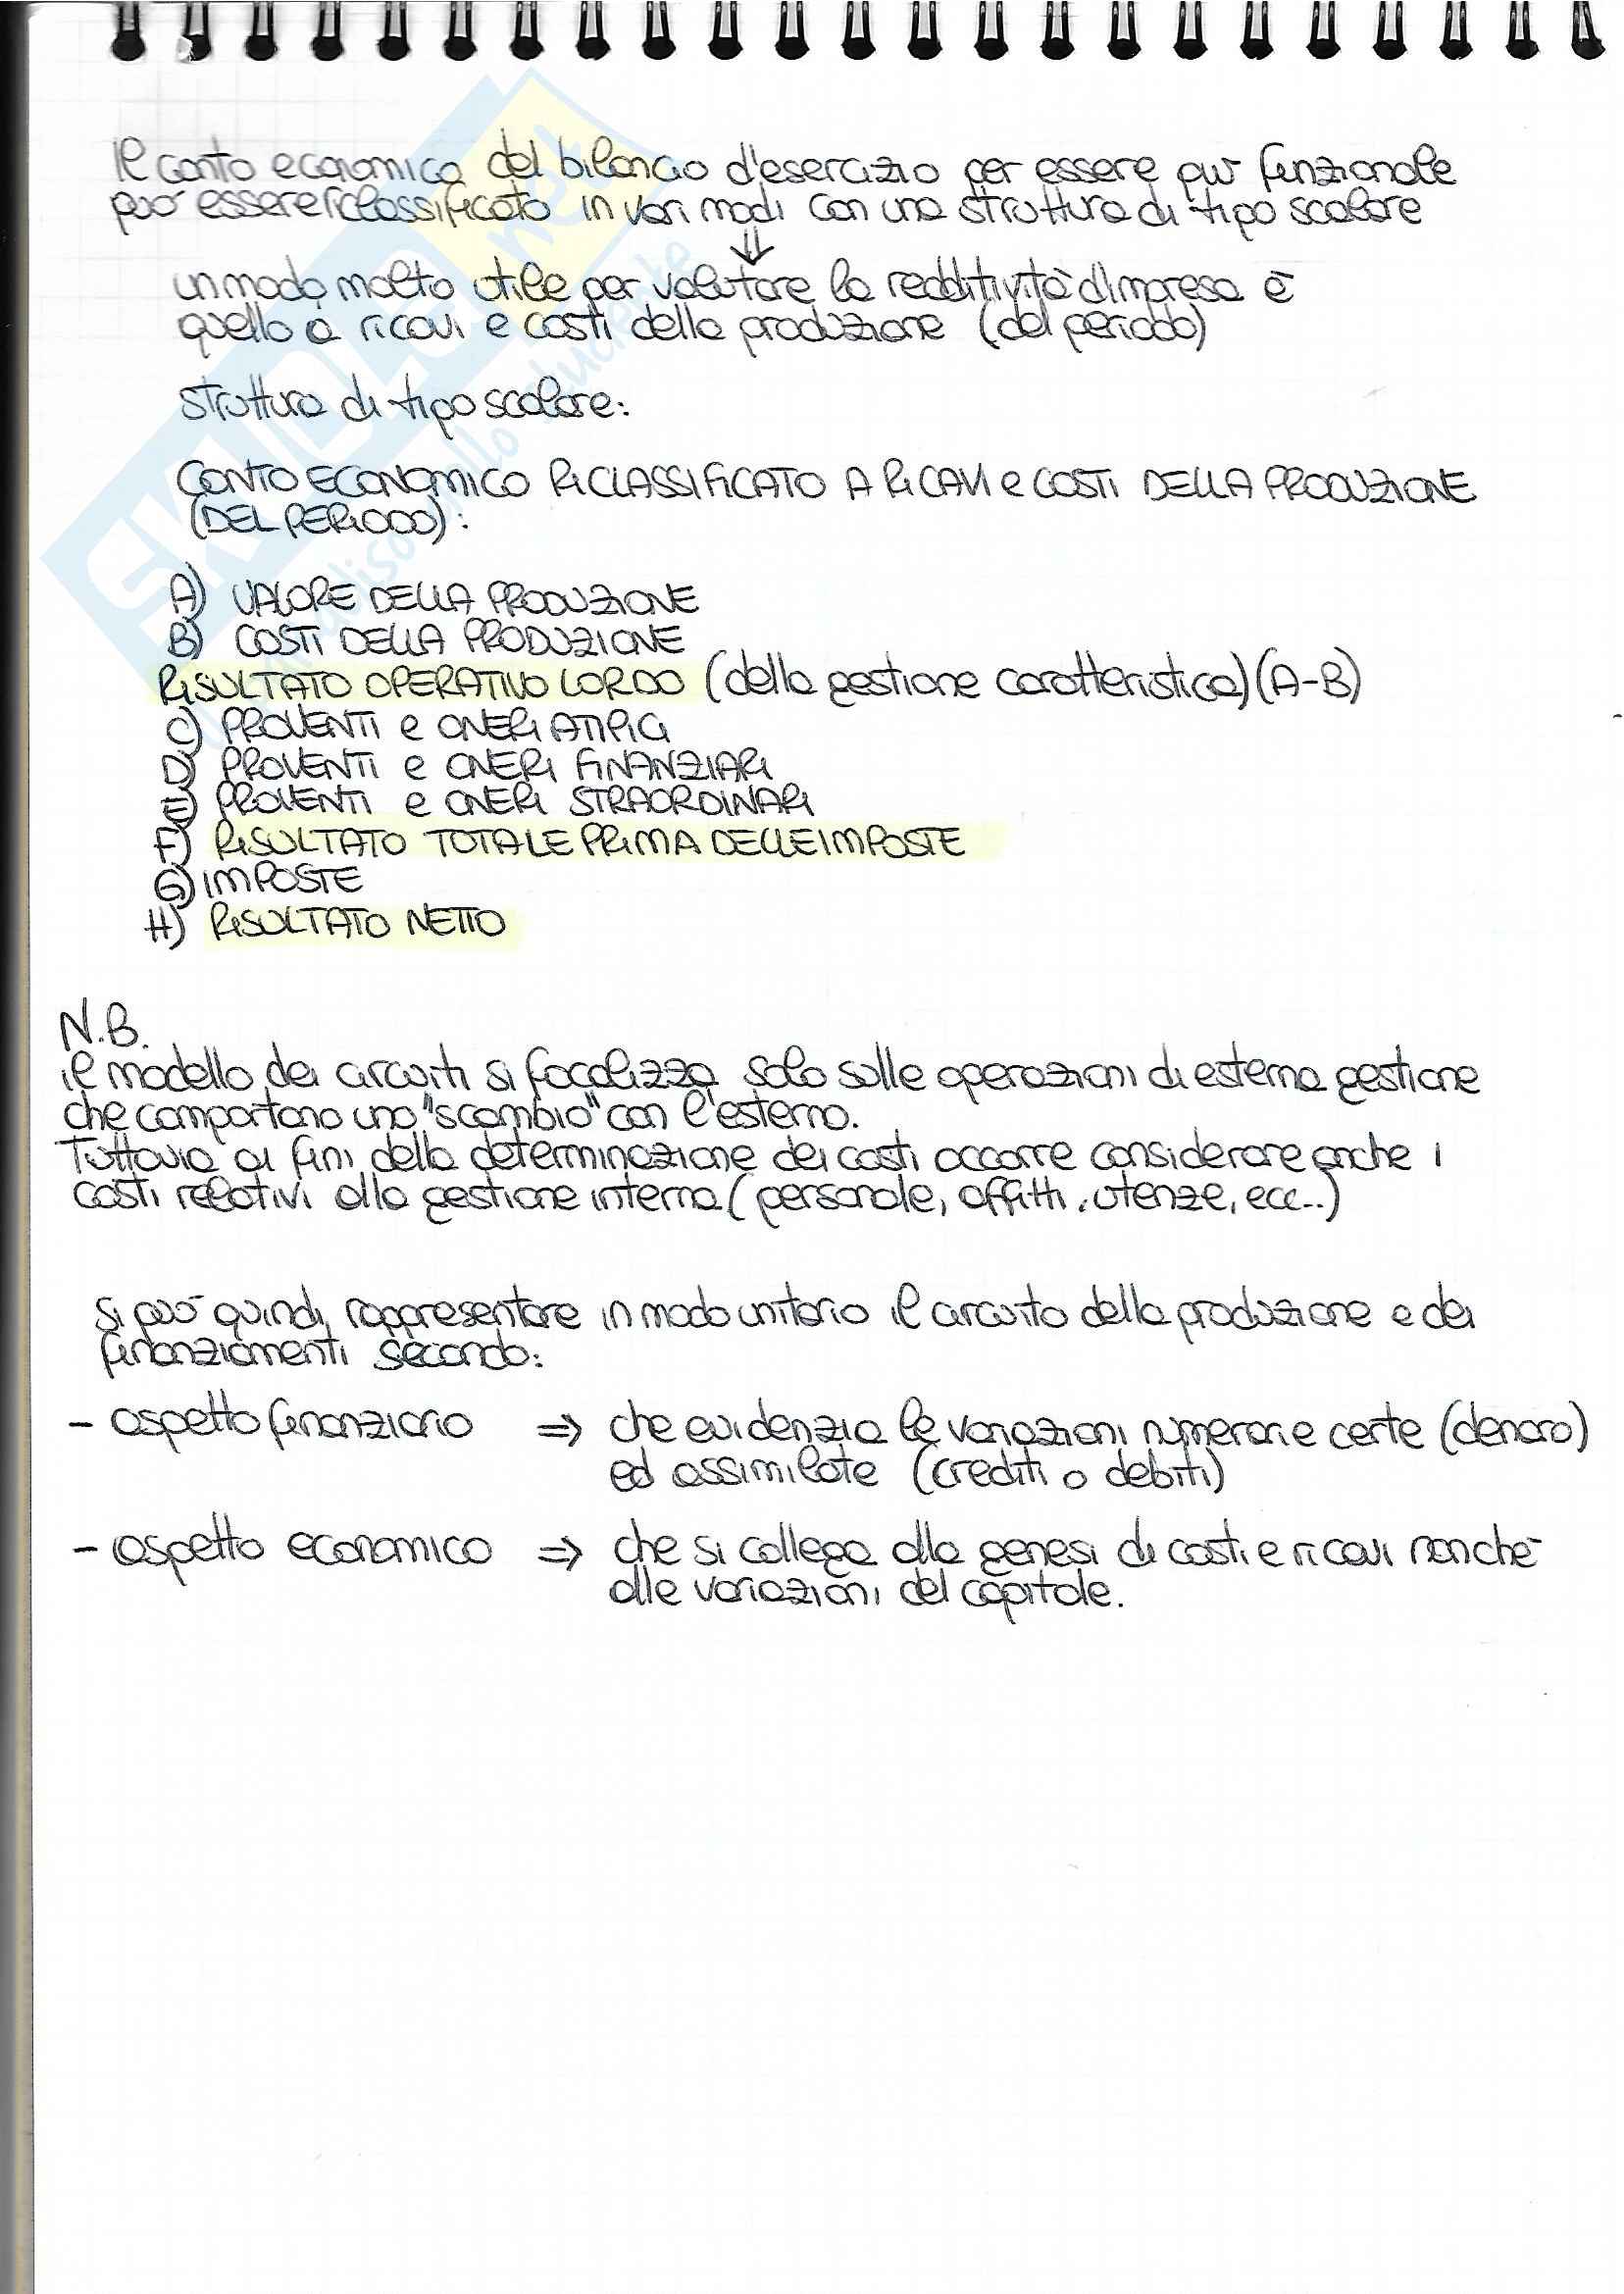 Il conto economico del bilancio d'esercizio per essere più funzionale
può essere riclassificato in vari modi con una struttura di tipo scalare
⇓
un modo molto utile per valutare la redditività d'impresa è
quello a ricavi e costi della produzione (del periodo)
struttura di tipo scalare:
CONTO ECONOMICO RICLASSIFICATO A RICAVI e COSTI DELLA PRODUZIONE
(DEL PERIODO):
A) VALORE DELLA PRODUZIONE
B) COSTI DELLA PRODUZIONE
RISULTATO OPERATIVO LORDO (della gestione caratteristica) (A-B)
C) PROVENTI e ONERI ATIPICI
D) PROVENTI e ONERI FINANZIARI
E) PROVENTI e ONERI STRAORDINARI
F) RISULTATO TOTALE PRIMA DELLE IMPOSTE
G) IMPOSTE
H) RISULTATO NETTO
N.B.
il modello dei circuiti si focalizza solo sulle operazioni di esterna gestione
che comportano uno "scambio" con l'esterno.
Tuttavia ai fini della determinazione dei costi occorre considerare anche i
costi relativi alla gestione interna (personale, affitti, utenze, ecc..)
si può quindi rappresentare in modo unitario il circuito della produzione e dei
finanziamenti secondo:
- aspetto finanziario ⇒ che evidenzia le variazioni numerarie certe (denaro)
ed assimilate (crediti o debiti)
- aspetto economico ⇒ che si collega alla genesi di costi e ricavi nonché
alle variazioni del capitale.